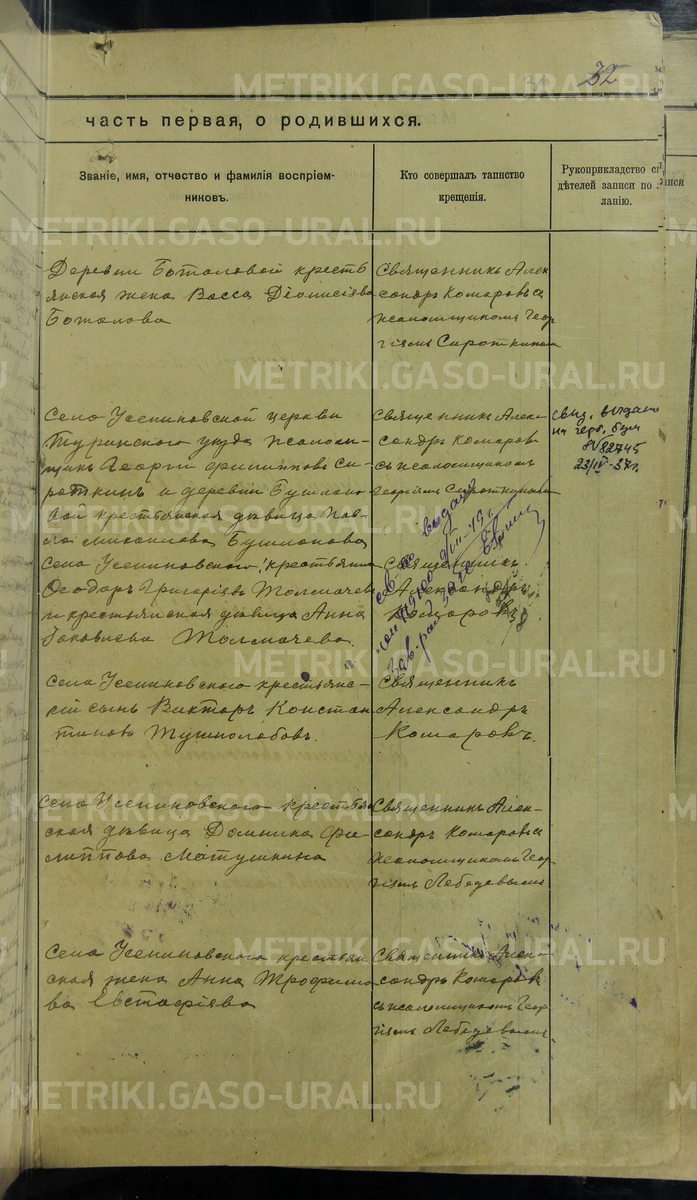 32
часть первая, о родившихся.
Званіе, имя, отчество и фамилія воспріем-
никовъ.
Кто совершалъ таинство
крещенія.
Рукоприкладство сви
дѣтелей записи по
ланію.
Деревни Боталовой кресть
янская жена Васса Діонисіева
Боталова
Священникъ Алек
сандръ Комаровъ съ
псаломщикомъ Геор
гіемъ Сироткинымъ
Село Усениновской церкви
Туринского уѣзда псалом-
щикъ Георгій Филипповъ Си-
роткинъ и деревни Бушлано
вой крестьянская дѣвица Пав
ла Михаилова Бушланова
Священникъ Алек-
сандръ Комаров
съ псаломщикомъ
Георгіемъ Сироткинымъ
свид. выдано
на герб. бум
№ 82745
23/IV-37г.
Села Усениновского крестьянинъ
Ѳеодоръ Григоріевъ Толмачевъ
и крестьянская дѣвица Анна
Іаковлева Толмачева.
Священникъ
Александръ
Комаровъ
выдано
Села Усениновского крестьянс-
кій сынъ Викторъ Констан
тиновъ Тушнолобовъ.
Священникъ
Александръ
Комаровъ.
Село Усениновского крестьян
ская дѣвица Домника Фи-
липпова Матушкина
Священникъ Алек-
сандръ Комаровъ съ
псаломщикомъ Геор
гіемъ Лебедевымъ
Села Усениновского крестьян
ская жена Анна Трофимо
ва Евстафіева
Священникъ Алек-
сандръ Комаров
съ псаломщикомъ Геор
гіемъ Лебедевымъ
METRIKI.GASO-URAL.RU